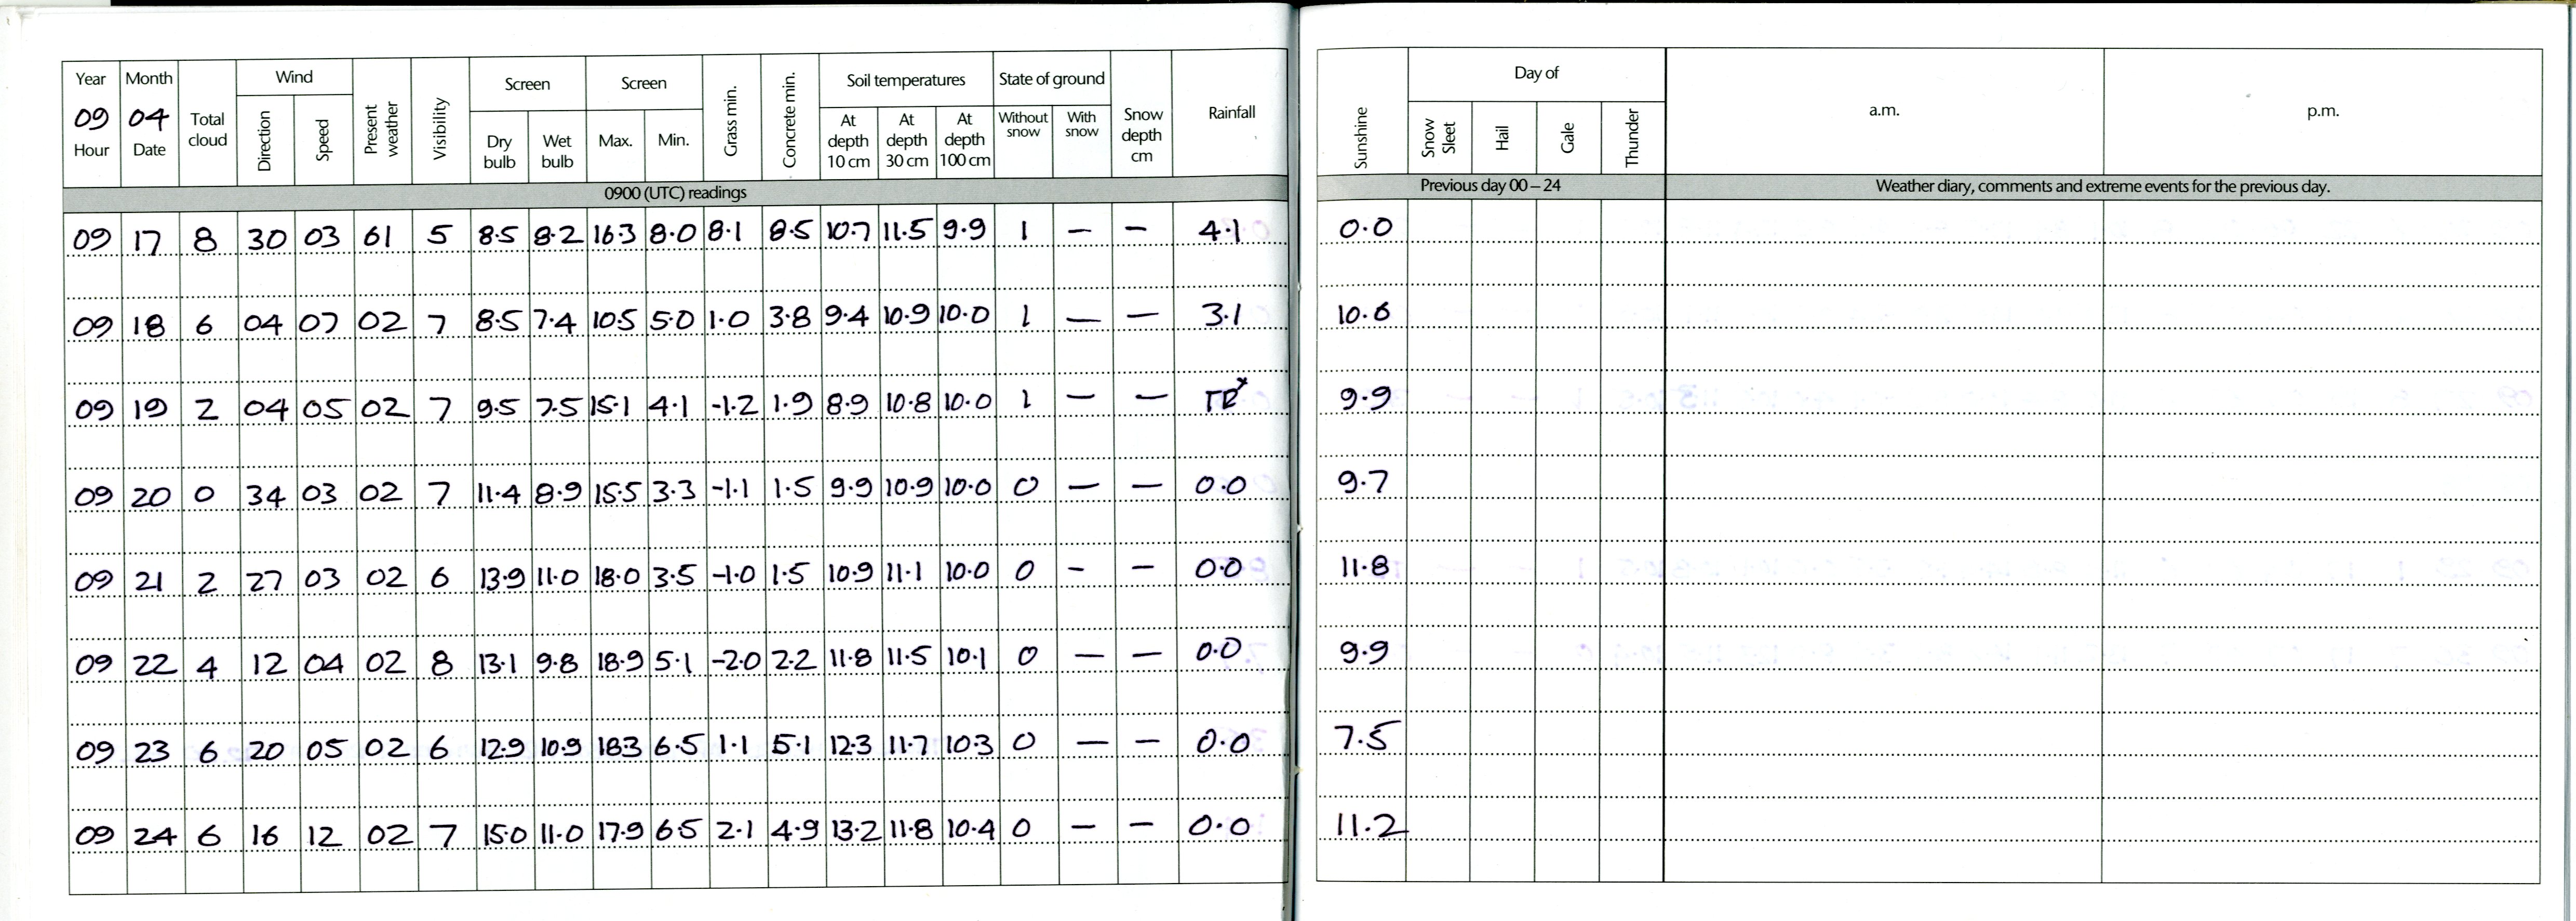 Year Month Total cloud Wind Present weather Visibility Screen Screen Grass min. Concrete min. Soil temperatures State of ground Snow depth cm Rainfall Sunshine Day of a.m. p.m.
09 04 Direction Speed Dry bulb Wet bulb Max. Min. At depth 10 cm At depth 30 cm At depth 100 cm Without snow With snow Snow Sleet Hail Gale Thunder
Hour Date
0900 (UTC) readings Previous day 00 – 24 Weather diary, comments and extreme events for the previous day.
09 17 8 30 03 61 5 8.5 8.2 16.3 8.0 8.1 8.5 10.7 11.5 9.9 1 — — 4.1 0.0
09 18 6 04 07 02 7 8.5 7.4 10.5 5.0 1.0 3.8 9.4 10.9 10.0 1 — — 3.1 10.6
09 19 2 04 05 02 7 9.5 7.5 15.1 4.1 -1.2 1.9 8.9 10.8 10.0 1 — — TR* 9.9
09 20 0 34 03 02 7 11.4 8.9 15.5 3.3 -1.1 1.5 9.9 10.9 10.0 0 — — 0.0 9.7
09 21 2 27 03 02 6 13.9 11.0 18.0 3.5 -1.0 1.5 10.9 11.1 10.0 0 - — 0.0 11.8
09 22 4 12 04 02 8 13.1 9.8 18.9 5.1 -2.0 2.2 11.8 11.5 10.1 0 — — 0.0 9.9
09 23 6 20 05 02 6 12.9 10.9 18.3 6.5 1.1 5.1 12.3 11.7 10.3 0 — — 0.0 7.5
09 24 6 16 12 02 7 15.0 11.0 17.9 6.5 2.1 4.9 13.2 11.8 10.4 0 — — 0.0 11.2